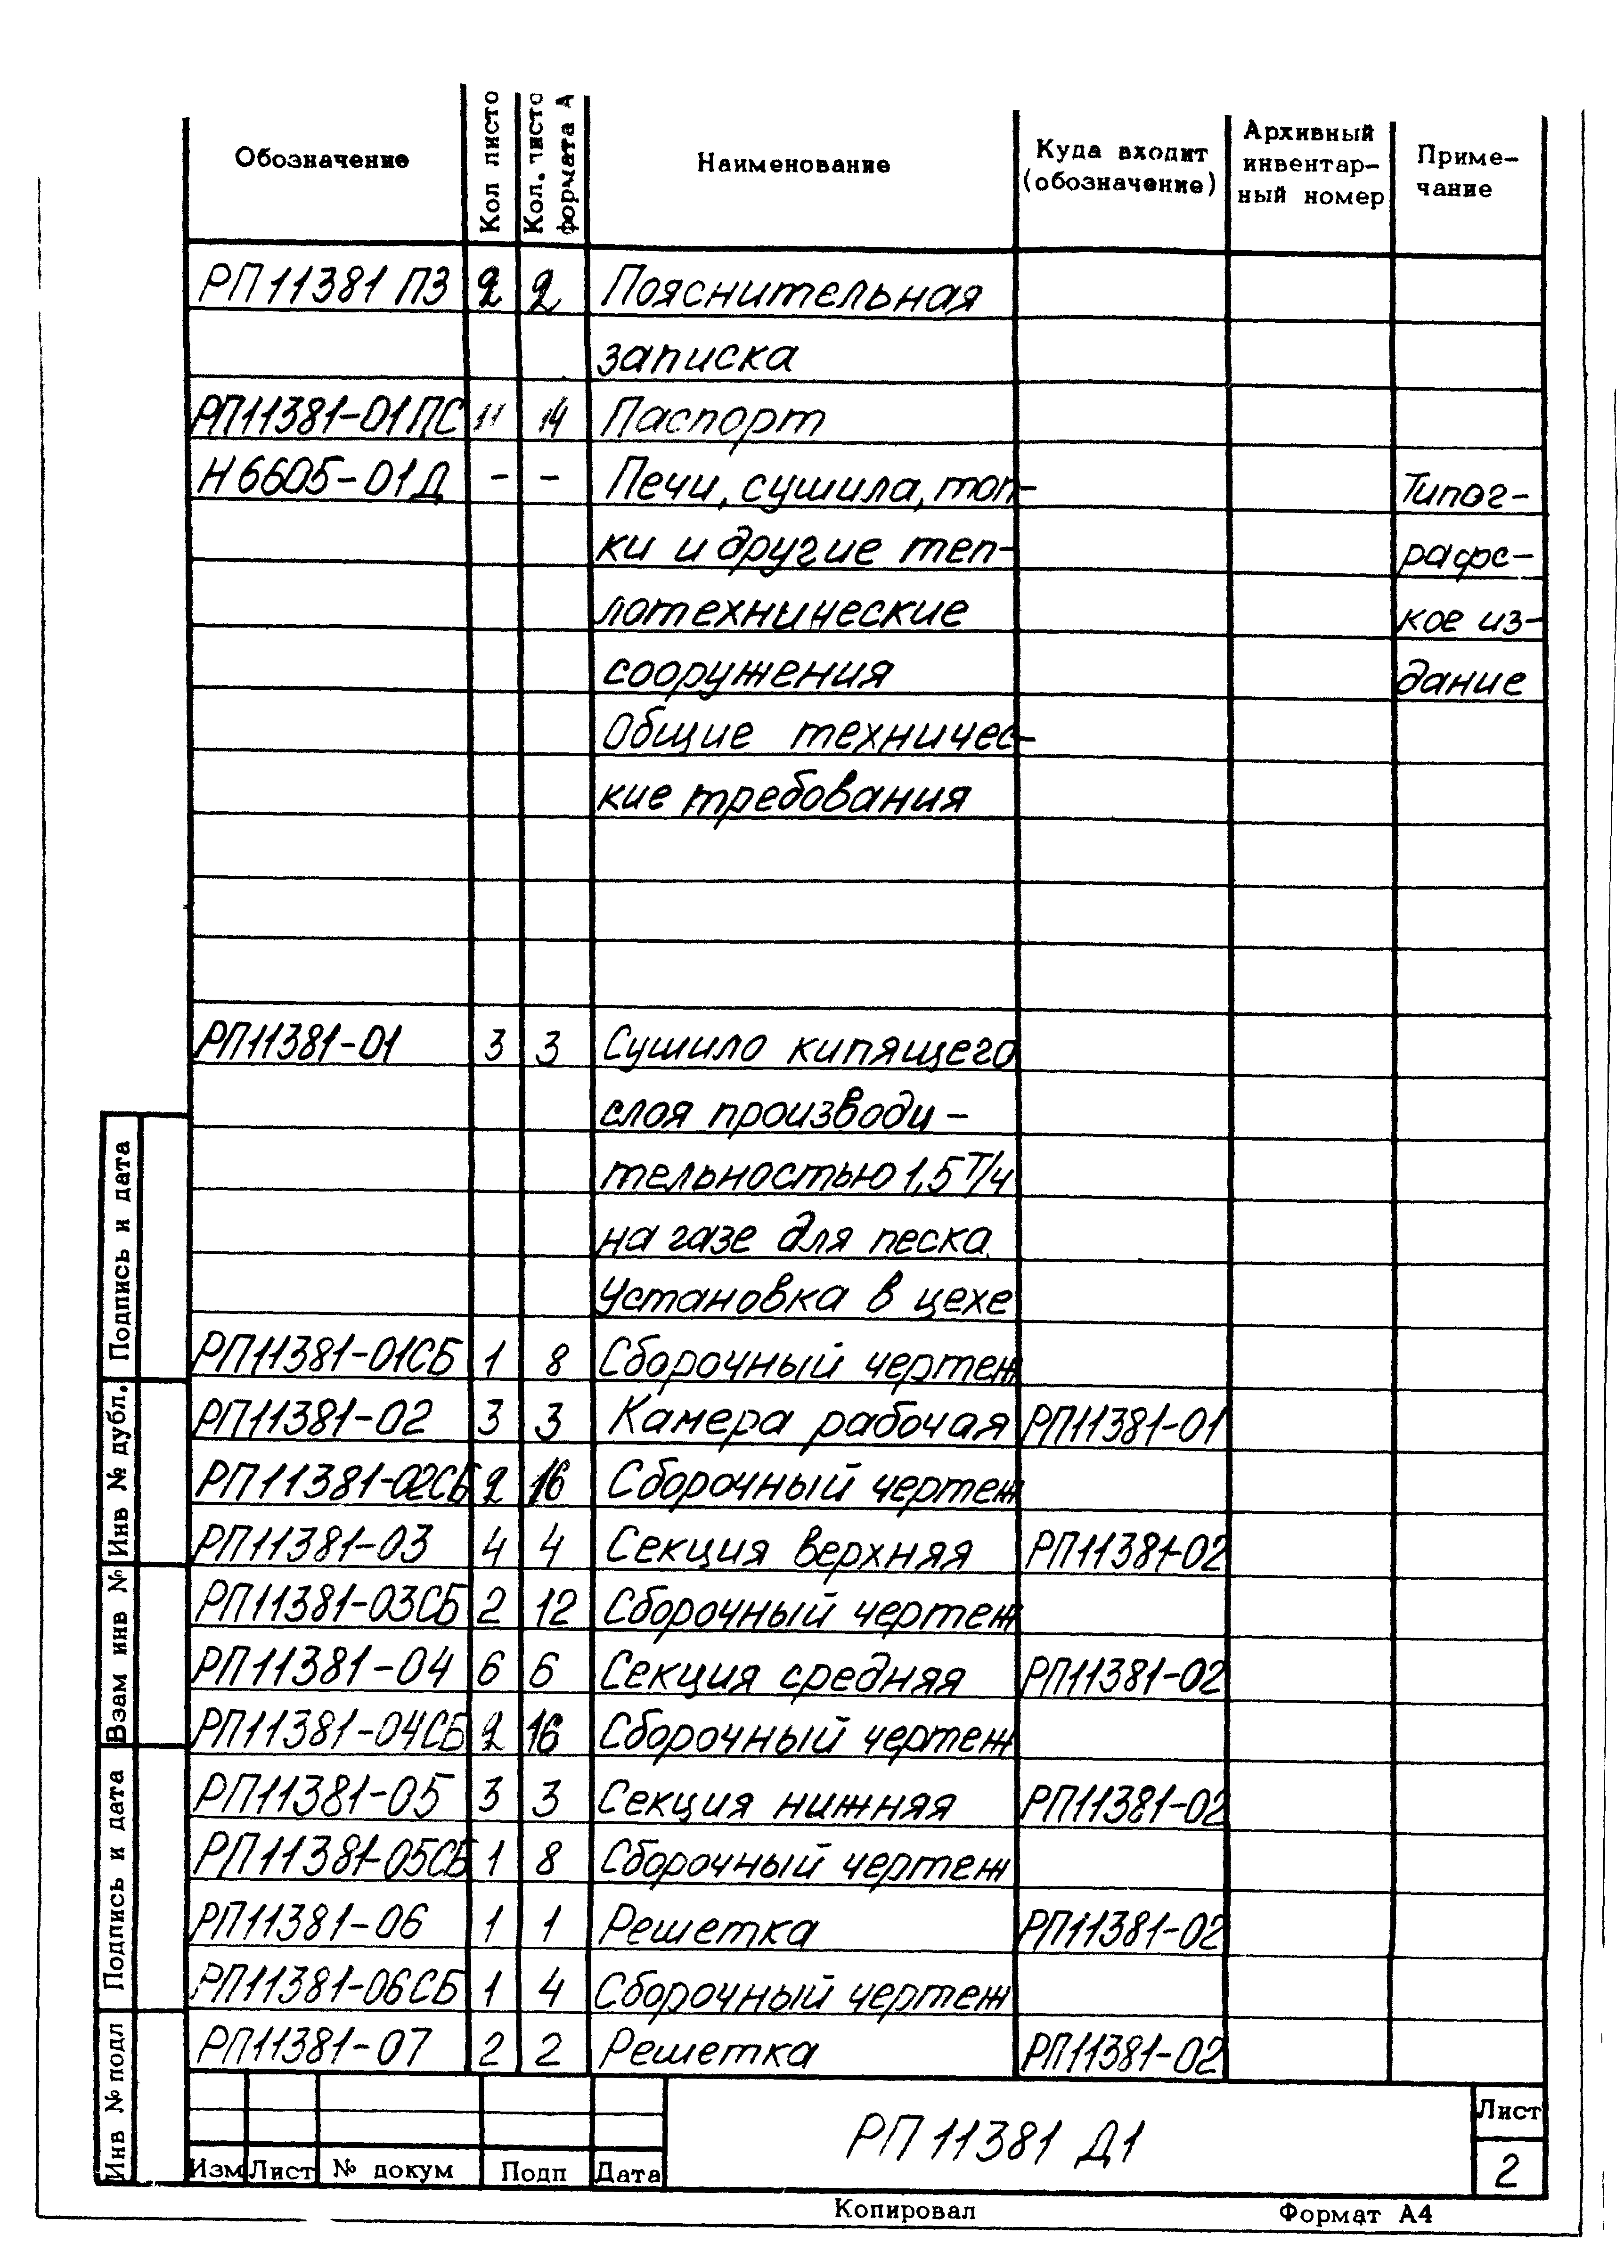 Обозначение
Кол листо
Кол. листо
формата А
Наименование
Куда входит
(обозначение)
Архивный
инвентар-
ный номер
Приме-
чание
РП 11381 ПЗ 2 2 Пояснительная
записка
РП11381-01ПС 11 14 Паспорт
Н6605-01Д - - Печи, сушила, топ- Типог-
ки и другие теп- рафс-
лотехнические кое из-
сооружения дание
Общие техничес-
кие требования
РП11381-01 3 3 Сушило кипящего
слоя производи-
тельностью 1,5 т/ч
на газе для песка.
Установка в цехе
РП11381-01СБ 1 8 Сборочный чертеж
РП11381-02 3 3 Камера рабочая РП11381-01
РП11381-02СБ 2 16 Сборочный чертеж
РП11381-03 4 4 Секция верхняя РП11381-02
РП11381-03СБ 2 12 Сборочный чертеж
РП11381-04 6 6 Секция средняя РП11381-02
РП11381-04СБ 2 16 Сборочный чертеж
РП11381-05 3 3 Секция нижняя РП11381-02
РП11381-05СБ 1 8 Сборочный чертеж
РП11381-06 1 1 Решетка РП11381-02
РП11381-06СБ 1 4 Сборочный чертеж
РП11381-07 2 2 Решетка РП11381-02
Подпись и дата
Инв № дубл.
Взам инв №
Подпись и дата
Инв № подл
Изм Лист № докум Подп Дата
РП 11381 Д1
Лист
2
Копировал Формат А4